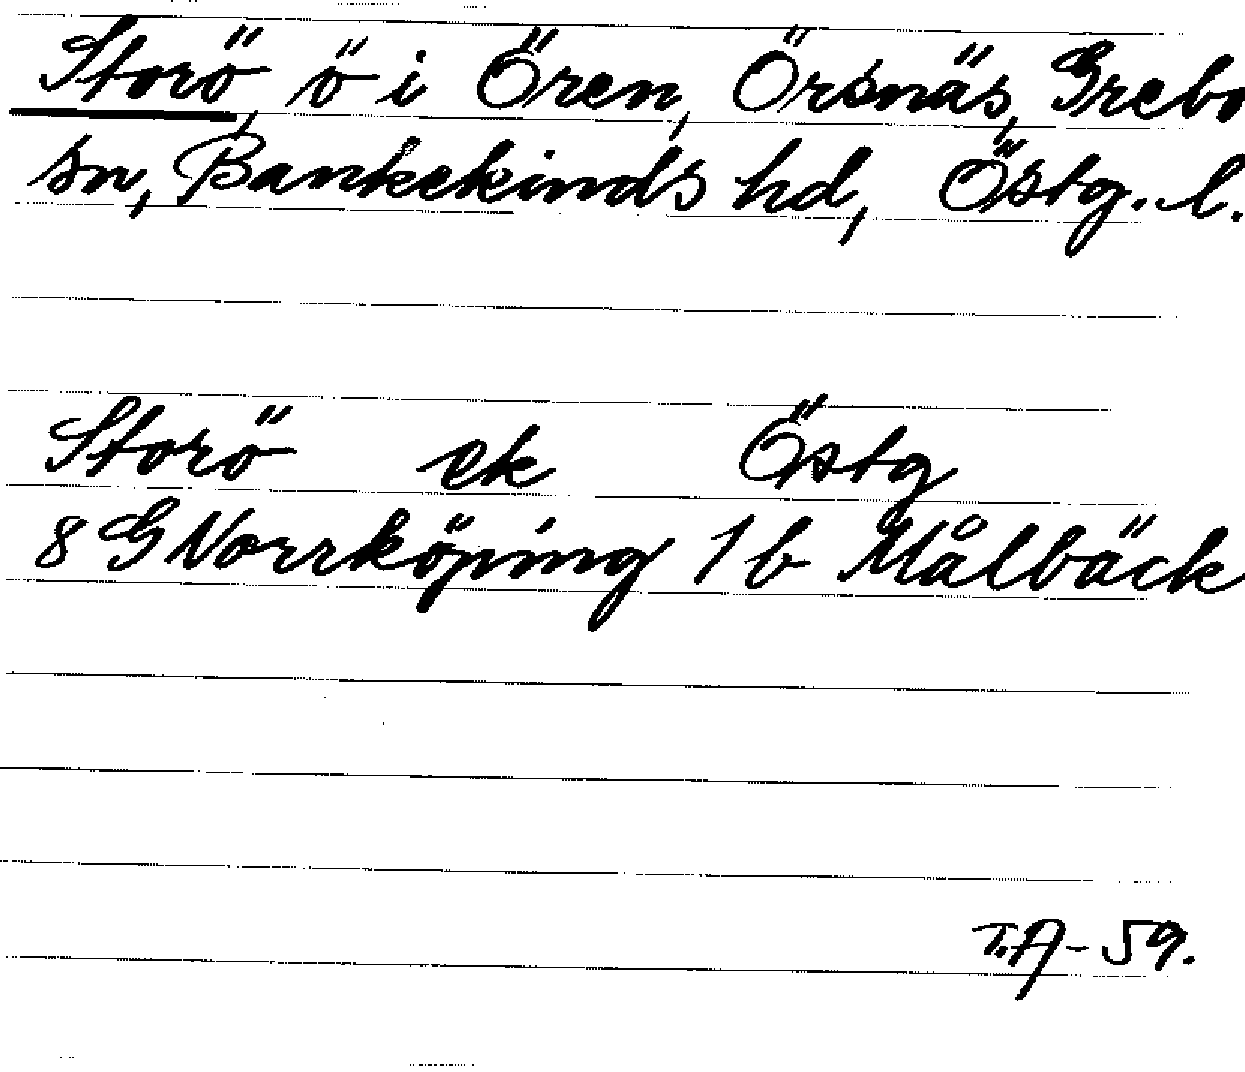 Storö, ö i Ören, Örsnäs, Grebo
sn, Bankekinds hd, Östg. l.
Storö ek Östg
8 G Norrköping 1 b Målbäck
T.A-59.